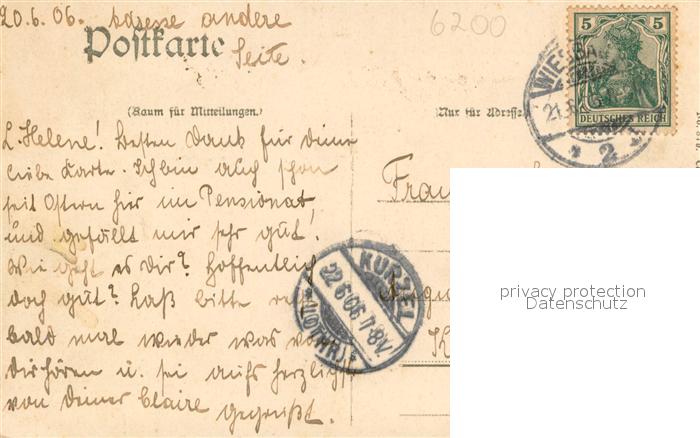 20.6.06. Adresse andere
Seite.
Postkarte
6200
(Raum für Mitteilungen.)
(Nur für Adresse
5 5
DEUTSCHES REICH
WIESBA
21.6
* 2 
L. Helene! Besten Dank für Deine
liebe Karte. Ich bin auch schon
seit Ostern hier im Pensionat
und gefällt mir sehr gut!
Wie geht es Dir? Hoffentlich
doch gut? Laß bitte
bald mal wieder was von
Dir hören u. sei aufs herzlichste
von Deiner Claire gegrüßt.
Frau
K
KURZEL
22.6.06.7-8V.
(LOTHR.)
privacy protection
Datenschutz